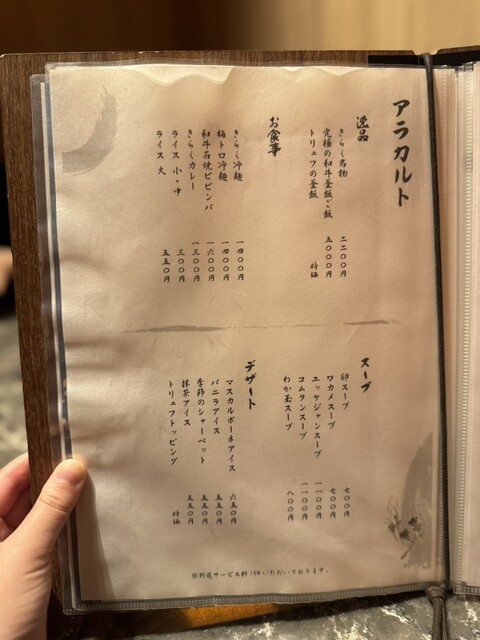 アラカルト
逸品
きらく名物 二二〇〇円
究極の和牛釜飯ご飯 五〇〇〇円
トリュフの釜飯 時価
お食事
きらく冷麺 一四〇〇円
梅トロ冷麺 一四〇〇円
和牛石焼ビビンバ 一六〇〇円
きらくカレー 一三〇〇円
ライス 小・中 三〇〇円
ライス 大 五五〇円
スープ
卵スープ 七〇〇円
ワカメスープ 七〇〇円
エッゲジャンスープ 一一〇〇円
コムタンスープ 一一〇〇円
わか玉スープ 八〇〇円
デザート
マスカルポーネアイス 六五〇円
バニラアイス 五五〇円
季節のシャーベット 五五〇円
抹茶アイス 五五〇円
トリュフトッピング 時価
※別途サービス料10%いただいております。